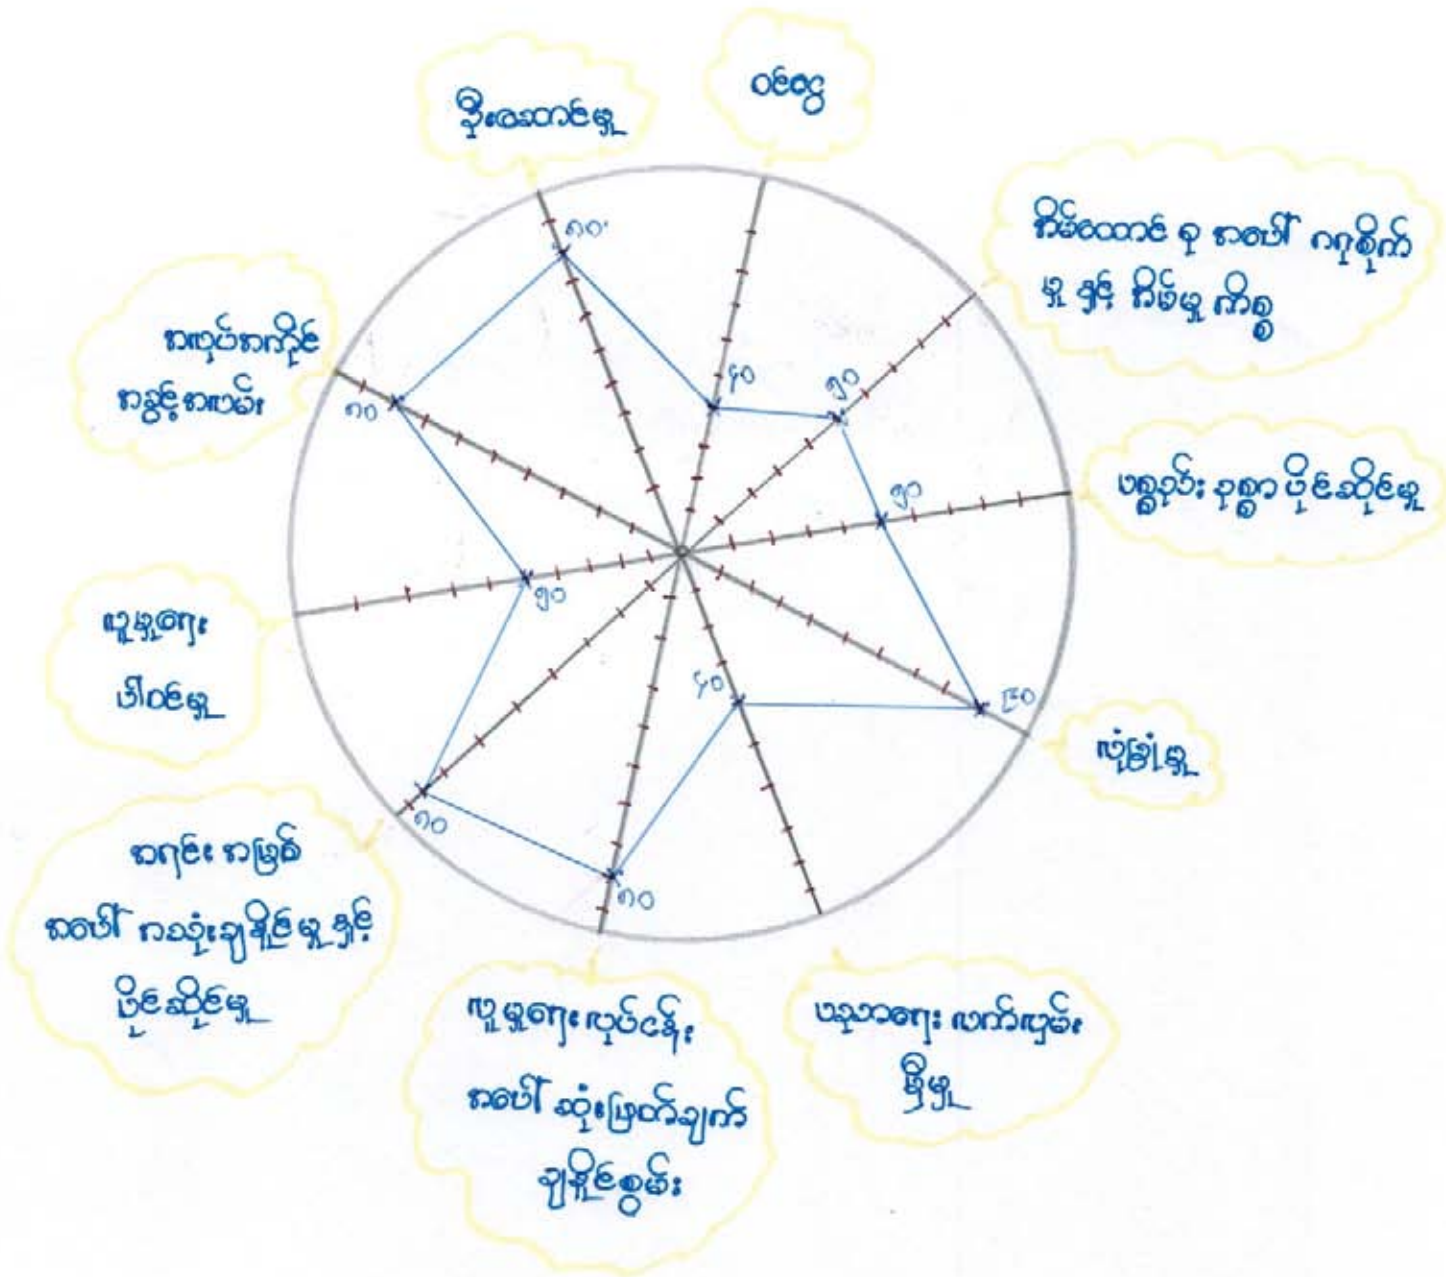 ဦးဆောင်မှု
ဝင်ငွေ
အိမ်ထောင် စု အပေါ် ဂရုစိုက်
မှု နှင့် အိမ်မှု ကိစ္စ
ပစ္စည်း ဥစ္စာ ပိုင်ဆိုင်မှု
လုံခြုံမှု
ပညာရေး လက်လှမ်း
မှီမှု
လူမှုရေး လုပ်ငန်း
အပေါ် ဆုံးဖြတ်ချက်
ချနိုင်စွမ်း
အရင်း အမြစ်
အပေါ် အသုံးချနိုင်မှု နှင့်
ပိုင်ဆိုင်မှု
လူမှုရေး
ပါဝင်မှု
အလုပ်အကိုင်
အခွင့်အလမ်း
၈၀
၄၀
၅၀
၅၀
၉၀
၄၀
၈၀
၈၀
၅၀
၈၀